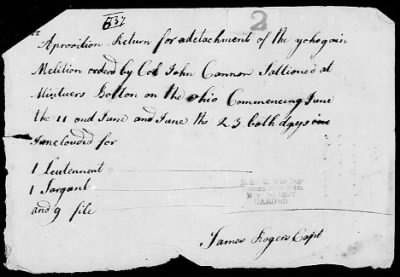 637
2
Aprosition Return for adetachment of the yohogain
Melition orderd by Col John Cannon Sattioned at
Mintuers Bottom on the ohio Commencing June
the 11 and June and June the 23 both days
Inclouded for
1 Leutennent
1 Sargant
and 9 file
CARDED
James Rogers Capt